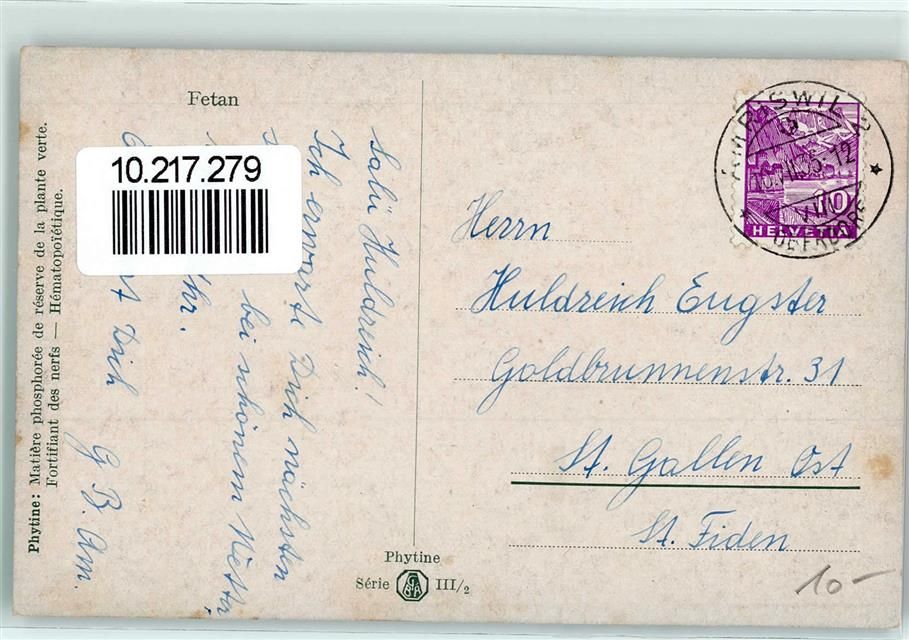 Fetan
10.217.279
Phytine: Matière phosphorée de réserve de la plante verte.
Fortifiant des nerfs — Hématopoïétique.
Salü Huldreich!
Ich erwarte Dich nächsten
bei schönem
Uhr.
Dich G B. Am.
Phytine
Série III/2
HELVETIA
10
AMRISWIL
Herrn
Huldreich Eugster
Goldbrunnenstr. 31
St. Gallen Ost
St. Fiden
10-